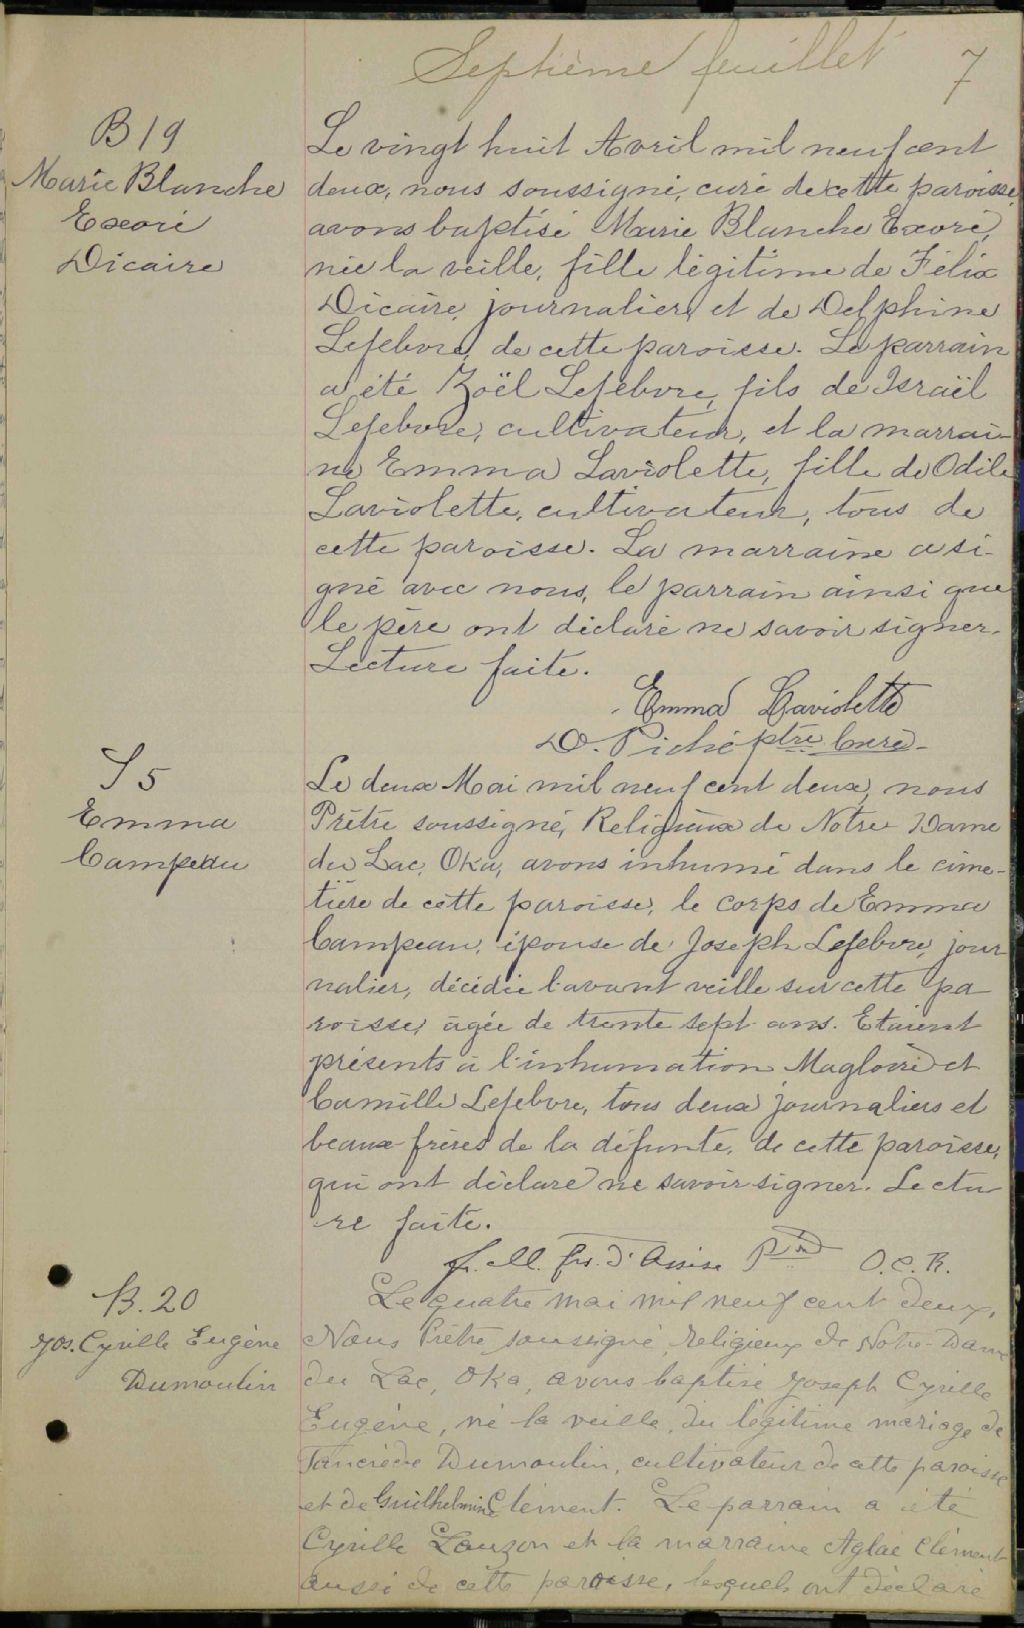 Septième feuillet 7
B 19
Marie Blanche
Exori
Dicaire
Le vingt huit Avril mil neuf cent
deux, nous soussigné, curé de cette paroisse,
avons baptisé Marie Blanche Exoré,
née la veille, fille légitime de Félix
Dicaire, journalier, et de Delphine
Lefebvre, de cette paroisse. Le parrain
a été Zoël Lefebvre, fils de Israël
Lefebvre, cultivateur, et la marrai-
ne Emma Laviolette, fille de Odile
Laviolette, cultivateur, tous de
cette paroisse. La marraine a si-
gné avec nous, le parrain ainsi que
le père ont déclaré ne savoir signer.
Lecture faite.
Emma Laviolette
D. Piché ptre Curé-
S 5
Emma
Campeau
Le deux Mai mil neuf cent deux, nous
Prêtre soussigné, Religieux de Notre Dame
du Lac, Oka, avons inhumé dans le cime-
tière de cette paroisse, le corps de Emma
Campeau, épouse de Joseph Lefebvre, jour
nalier, décédée l'avant veille sur cette pa
roisse, âgée de trente sept ans. Etaient
présents à l'inhumation Magloire et
Camille Lefebvre, tous deux journaliers et
beaux-frères de la défunte, de cette paroisse,
qui ont déclaré ne savoir signer. Lectu
re faite.
fr. M. frs. d'Assise O.C.R.
B. 20
Jos. Cyrille Eugène
Dumoulin
Le quatre mai mil neuf cent deux,
Nous Prêtre soussigné, religieux de Notre-Dame
du Lac, Oka, avons baptisé Joseph Cyrille
Eugène, né la veille, du légitime mariage de
Tancrède Dumoulin, cultivateur de cette paroisse
et de Guilhelmine Clément. Le parrain a été
Cyrille Lauzon et la marraine Aglae Clément
aussi de cette paroisse, lesquels ont déclaré